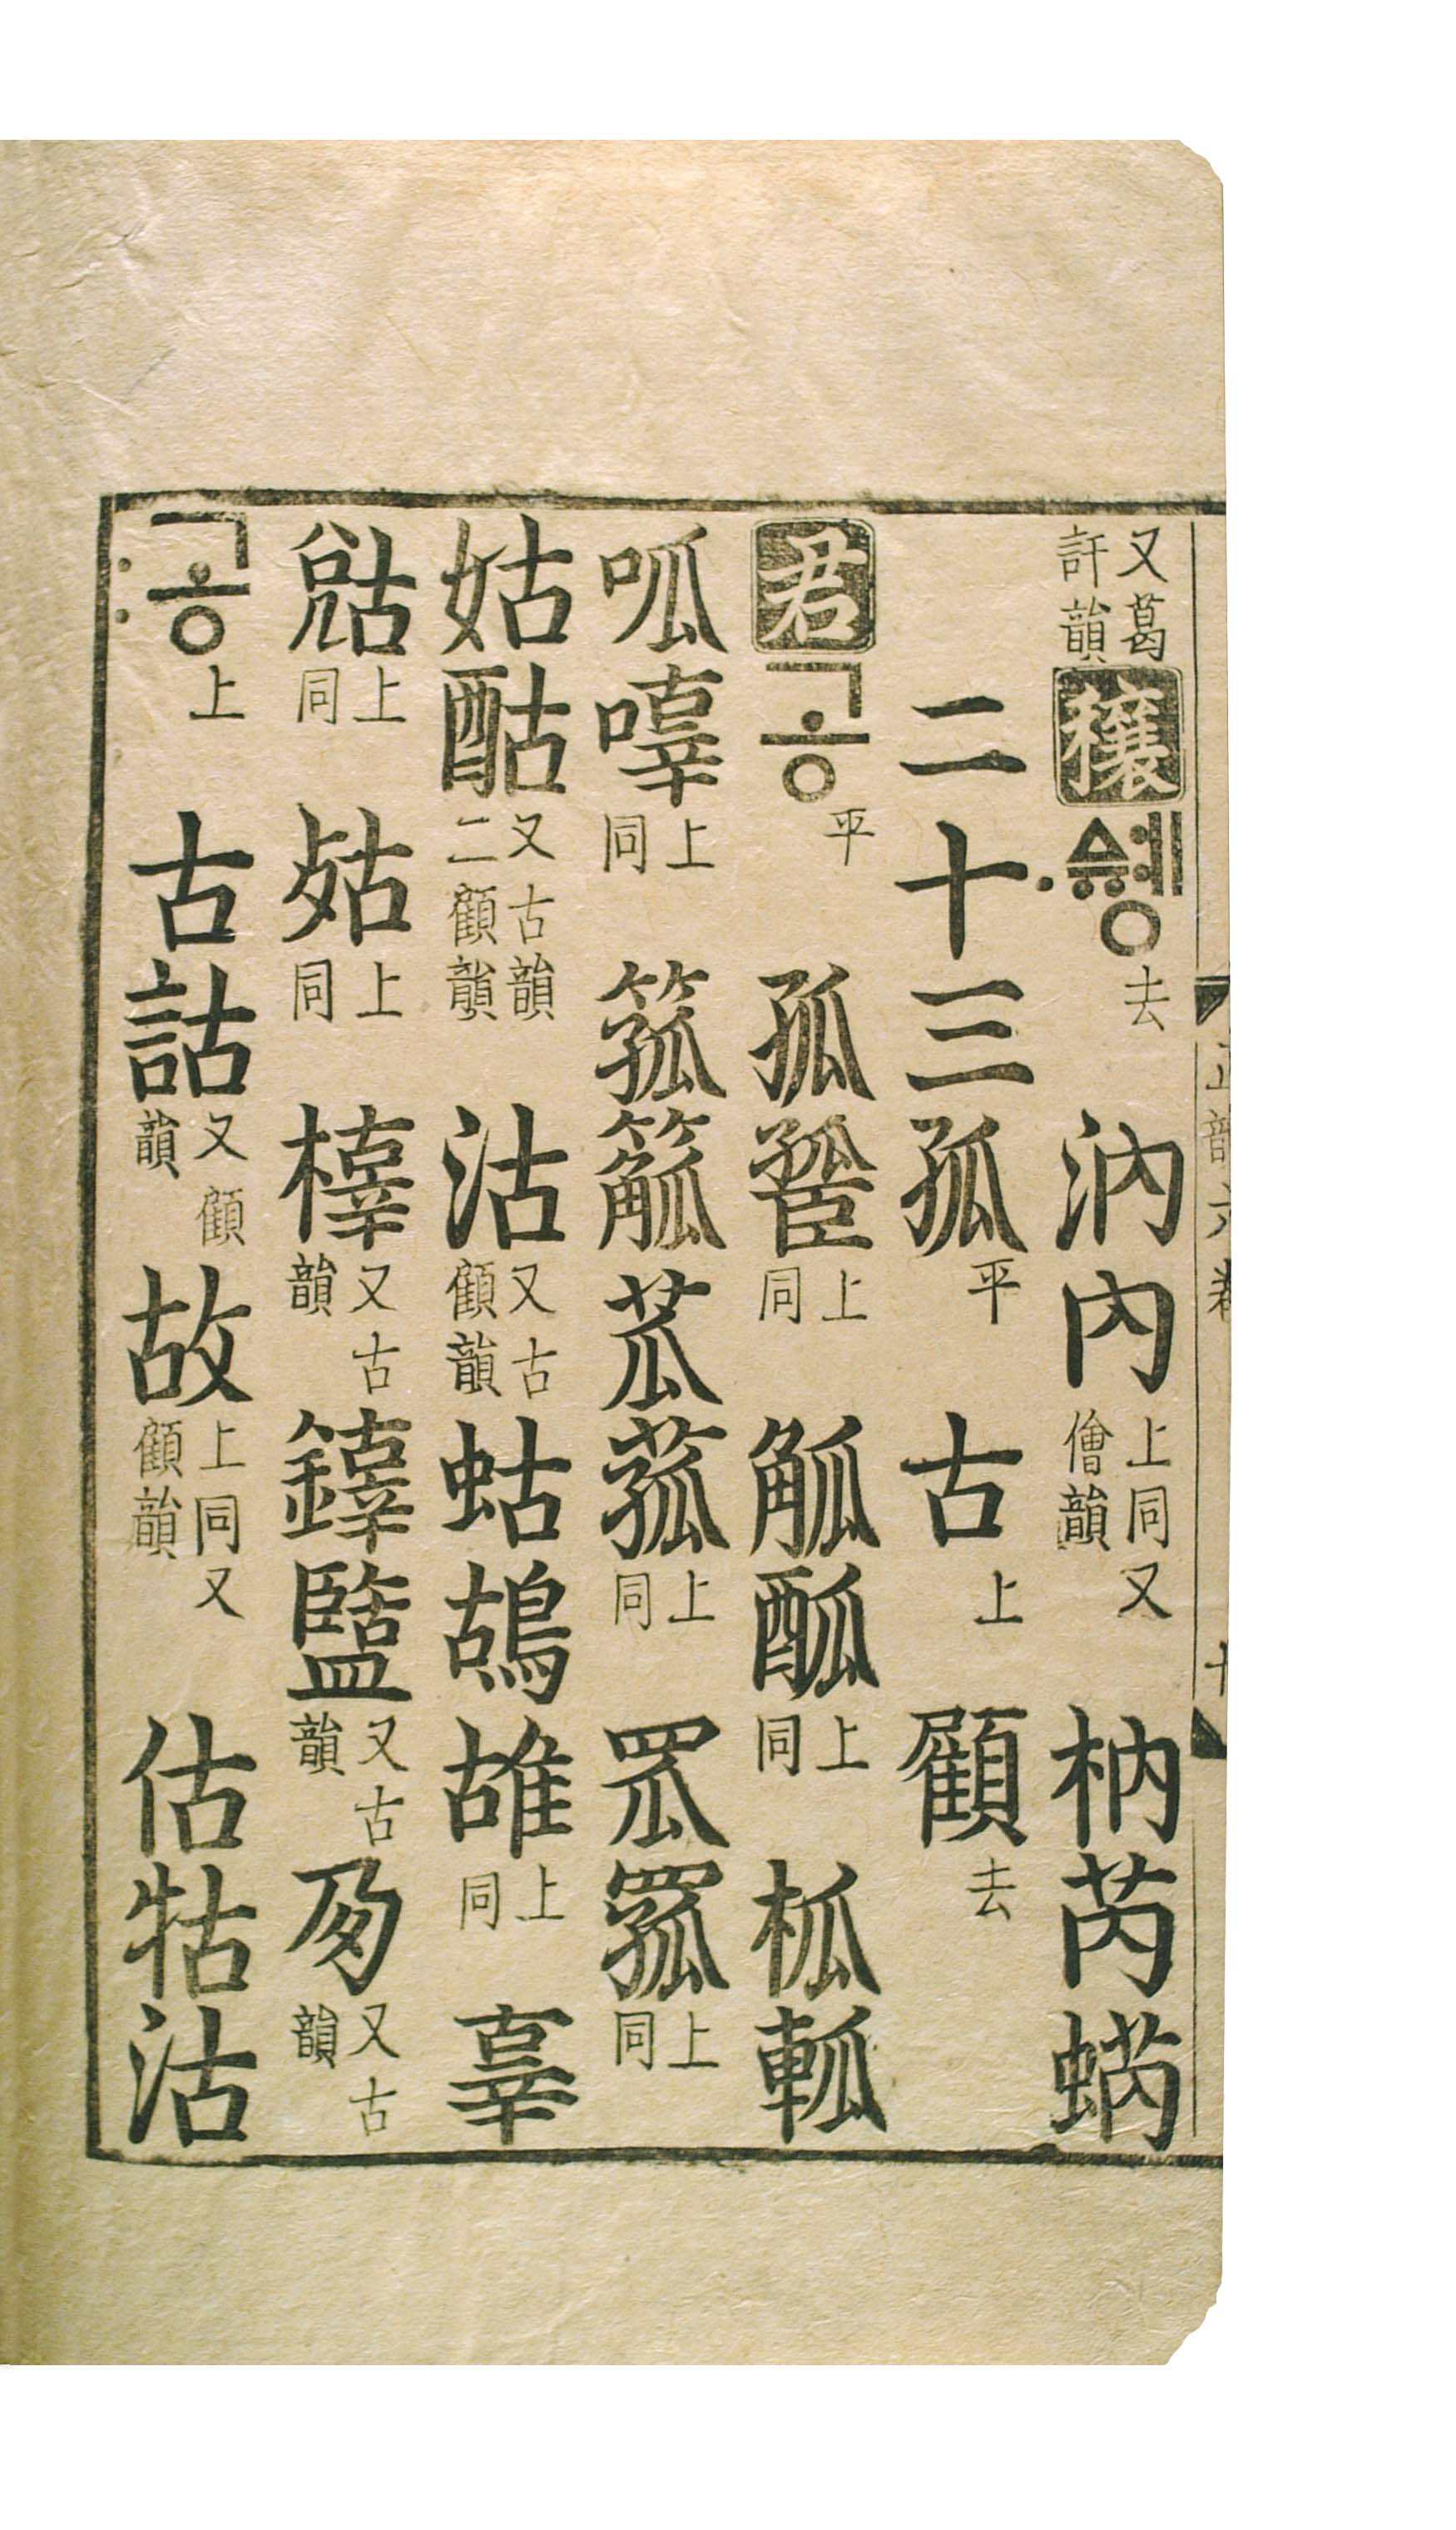 又葛訐韻 穰 去 汭內 上同又儈韻 枘芮蜹
二十三孤 平 古 上 顧 去
君 공 平 孤 上同 觚䣯 上同 柧軱
呱 上同 箛 苽菰 上同 罛罟 上同
姑酤 又古顧二韻 沽 又古顧韻 蛄鴣 上同 辜
上同 上同 橭 又古韻 盬 又古韻 夃 又古韻
공 上 古詁 又顧韻 故 上同又顧韻 估牯沽